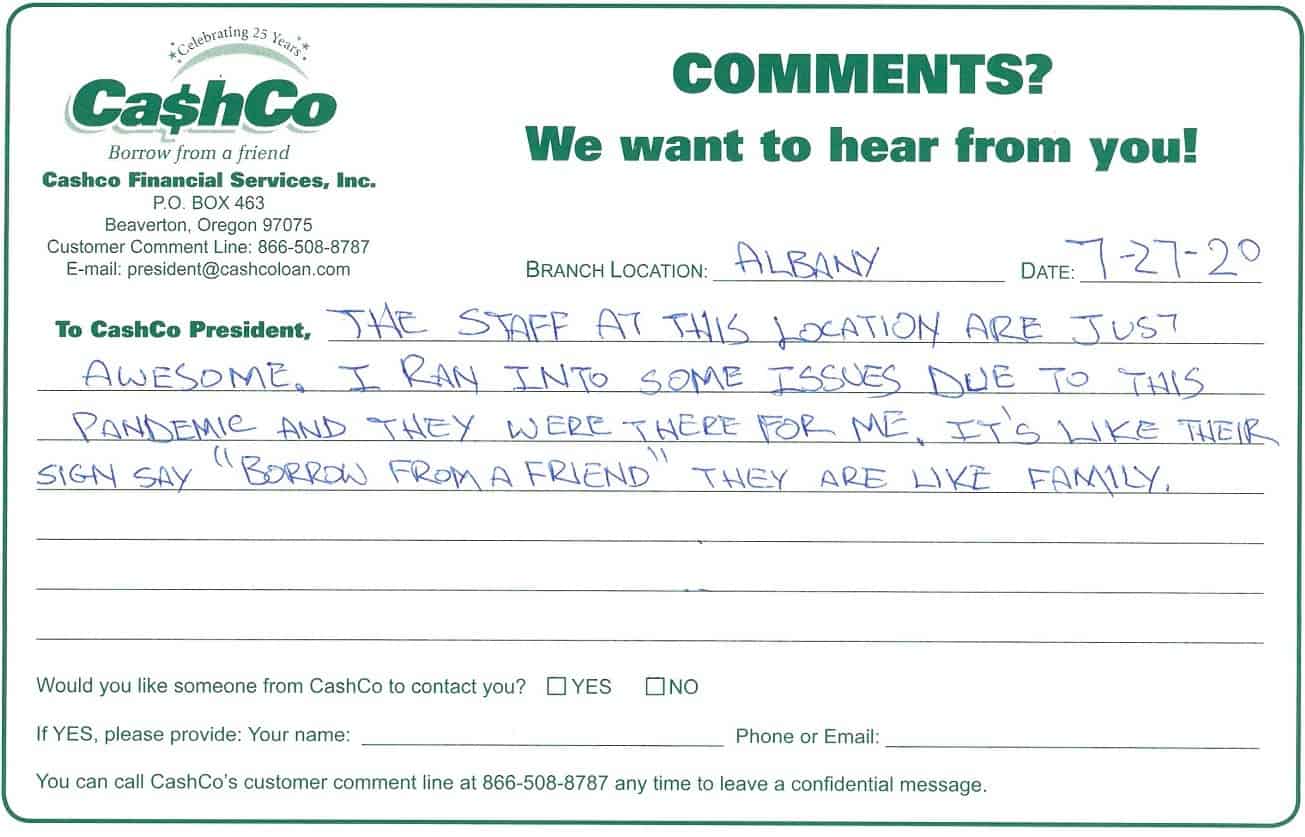 *Celebrating 25 Years*
Ca$hCo
Borrow from a friend
Cashco Financial Services, Inc.
P.O. BOX 463
Beaverton, Oregon 97075
Customer Comment Line: 866-508-8787
E-mail: president@cashcoloan.com
COMMENTS?
We want to hear from you!
BRANCH LOCATION: ALBANY DATE: 7-27-20
To CashCo President, THE STAFF AT THIS LOCATION ARE JUST
AWESOME. I RAN INTO SOME ISSUES DUE TO THIS
PANDEMIC AND THEY WERE THERE FOR ME. IT'S LIKE THEIR
SIGN SAY "BORROW FROM A FRIEND" THEY ARE LIKE FAMILY.
Would you like someone from CashCo to contact you? ☐ YES ☐ NO
If YES, please provide: Your name: Phone or Email:
You can call CashCo's customer comment line at 866-508-8787 any time to leave a confidential message.